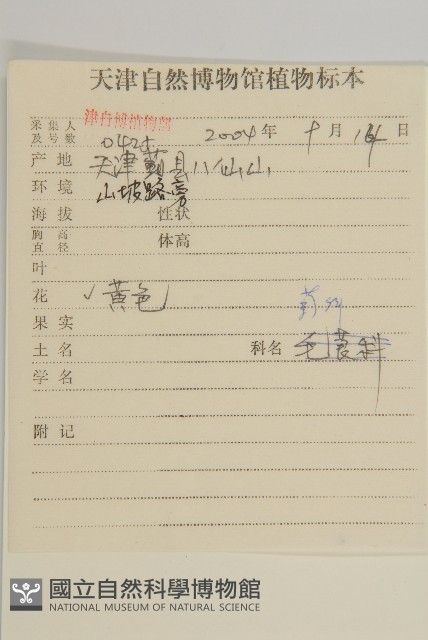 天津自然博物馆植物标本
采集人及号数 津自博植物部 0424 2004年 十月 14日
产地 天津蓟县八仙山
环境 山坡路旁
海拔 性状
胸高直径 体高
叶
花 ✓黄色
果实
土名 科名 毛茛科
学名
附记
國立自然科學博物館
NATIONAL MUSEUM OF NATURAL SCIENCE